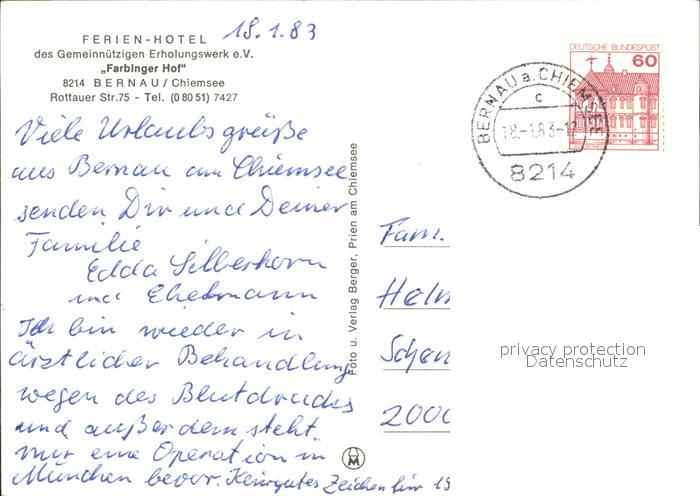 18.1.83
FERIEN-HOTEL
des Gemeinnützigen Erholungswerk e.V.
„Farbinger Hof"
8214 BERNAU/Chiemsee
Rottauer Str.75 - Tel. (0 80 51) 7427
Viele Urlaubsgrüße
aus Bernau am Chiemsee
senden Dir und Deiner
Familie
Edda Silberhorn
und Ehemann
Ich bin wieder in
ärztlicher Behandlung
wegen des Blutdrucks
und außerdem steht
mir eine Operation in
München bevor. Kein gutes Zeichen für 19
Foto u. Verlag Berger, Prien am Chiemsee
DEUTSCHE BUNDESPOST
60
BERNAU a. CHIEMSEE
c
18.-1.83-1
8214
Fam.
Helm
Schen
2000
privacy protection
Datenschutz